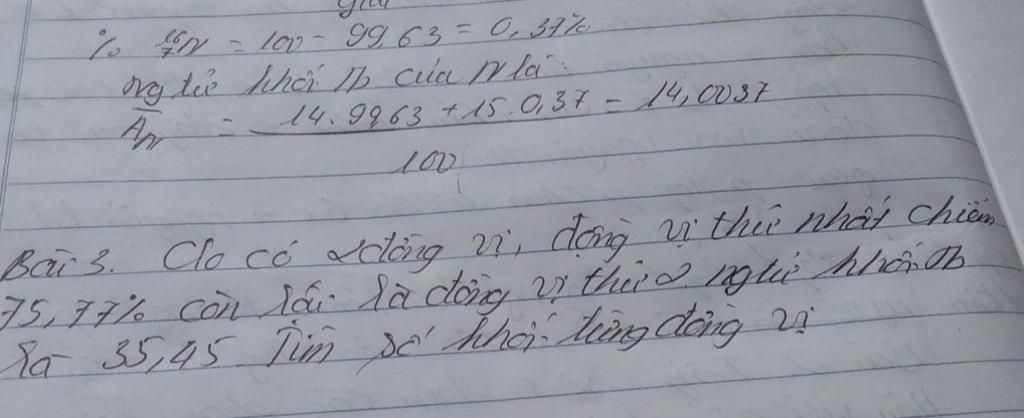 giải
% ¹⁶₇N = 100 - 99,63 = 0,37%
ng tử khối Tb của N là:
A̅N = 14.99,63 + 15.0,37 = 14,0037
100
Bài 3. Clo có 2 đồng vị, đồng vị thứ nhất chiếm
75,77% còn lại là đồng vị thứ 2. ngtử khối Tb
là 35,45 Tìm số khối từng đồng vị